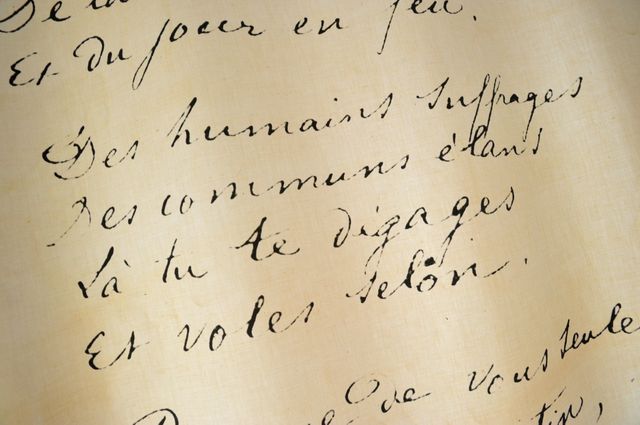 De la
Et du jour en feu.
Des humains suffrages
Des communs élans
Là tu te dégages
Et voles selon.
de vous seule